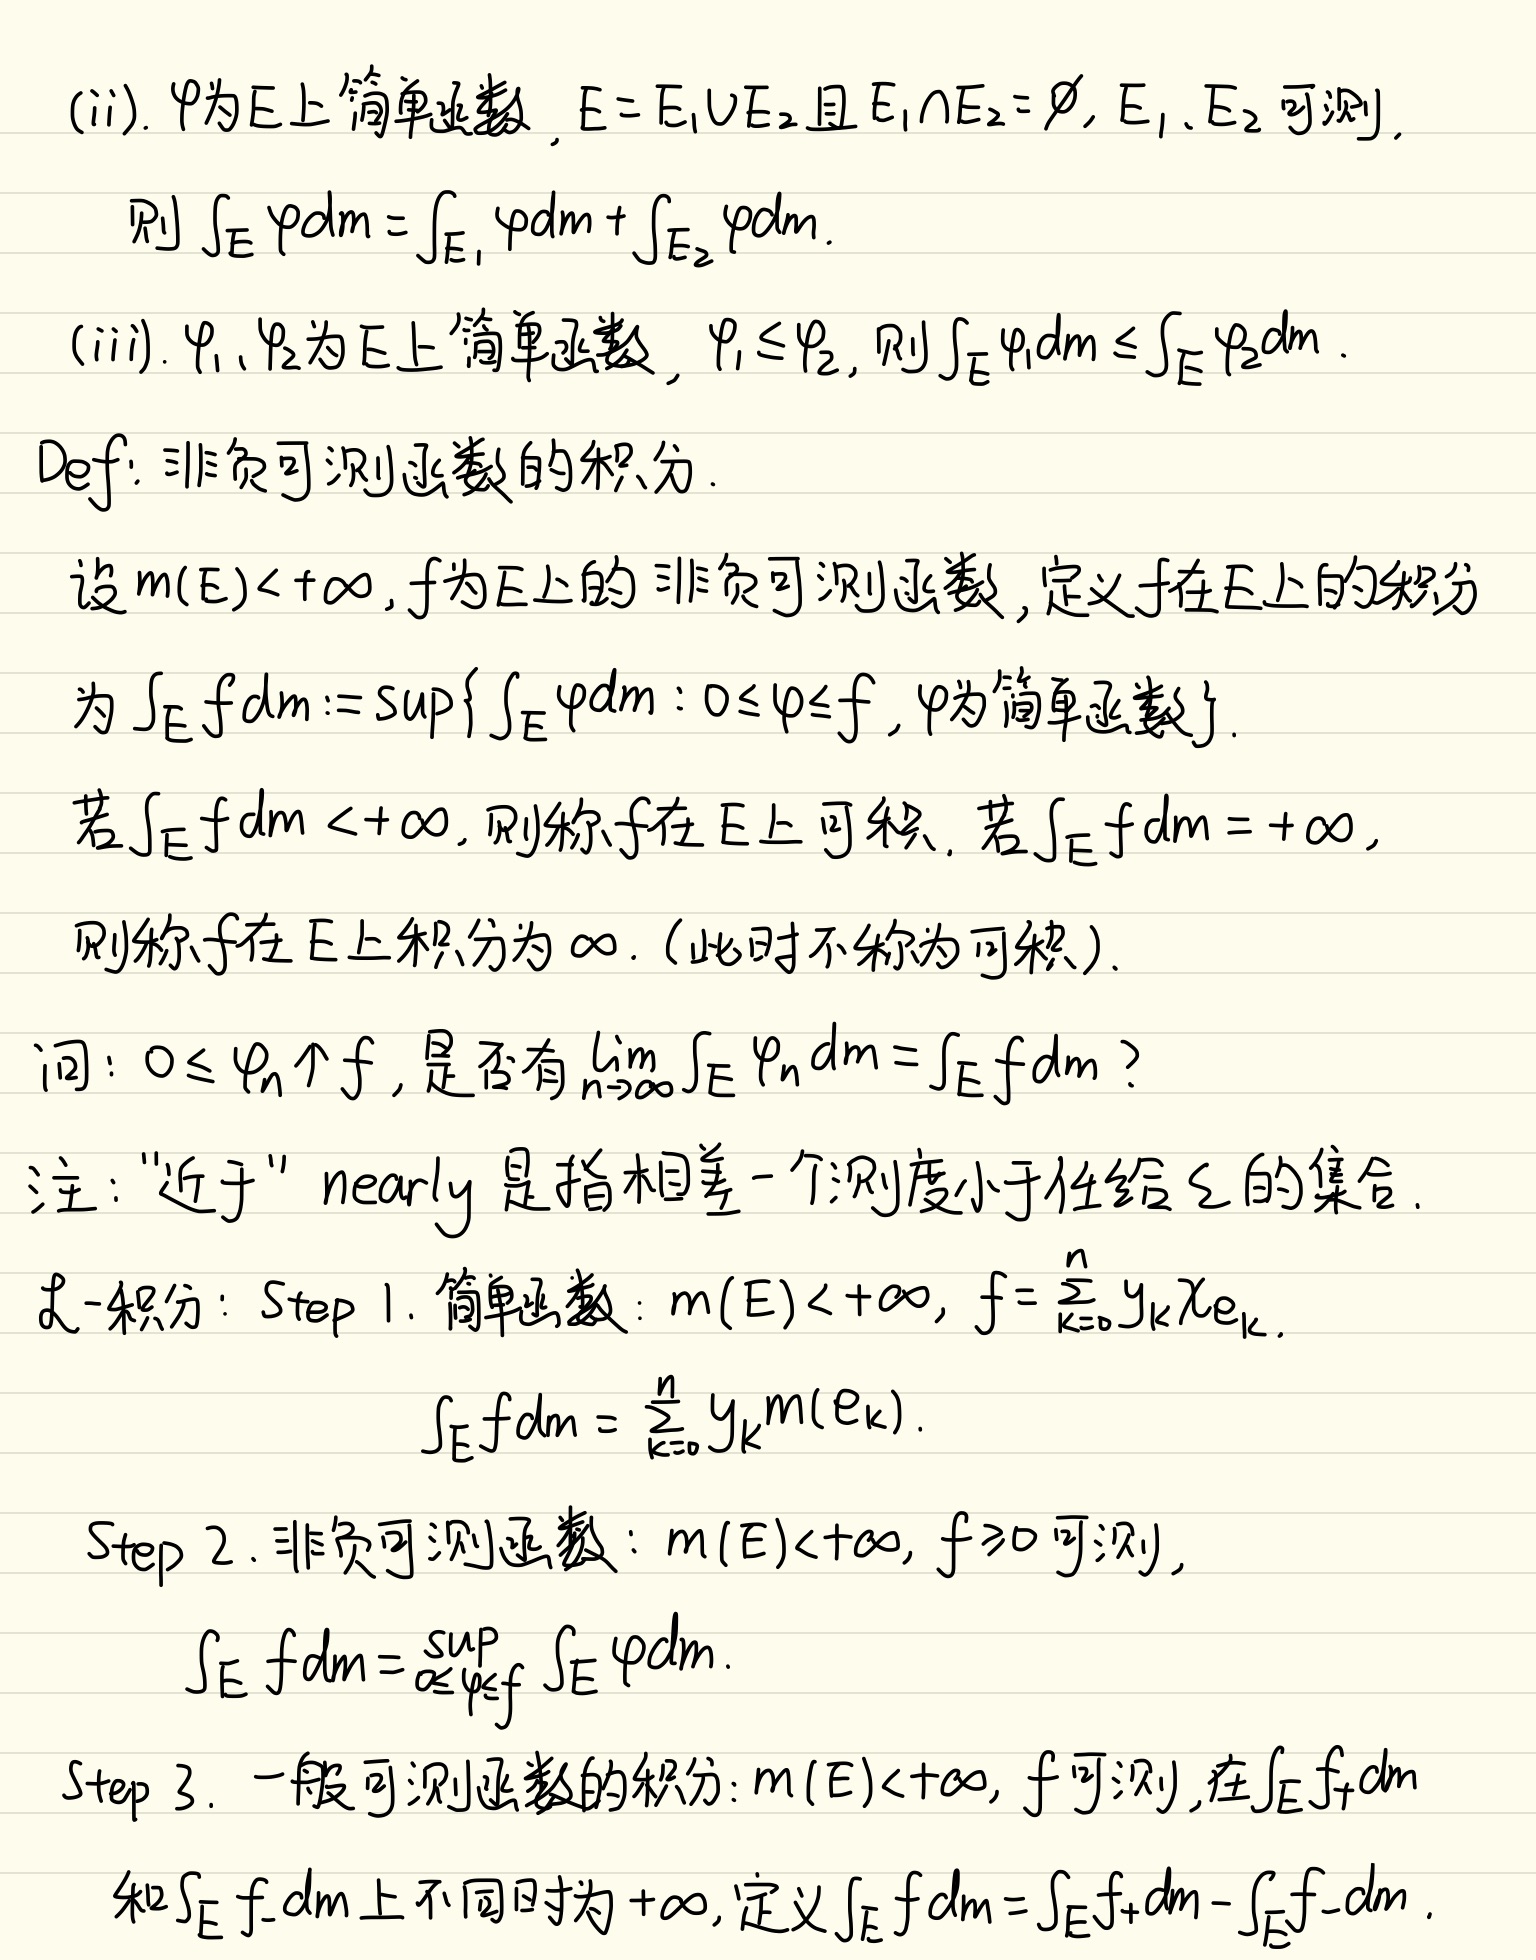 (ii). φ为E上简单函数, E=E₁∪E₂且E₁∩E₂=∅, E₁、E₂可测.
则 ∫_E φdm = ∫_{E₁} φdm + ∫_{E₂} φdm.
(iii). φ₁、φ₂为E上简单函数, φ₁≤φ₂, 则∫_E φ₁dm ≤ ∫_E φ₂dm.
Def: 非负可测函数的积分.
设m(E)<+∞, f为E上的非负可测函数, 定义f在E上的积分
为 ∫_E fdm := sup{∫_E φdm : 0≤φ≤f, φ为简单函数}.
若∫_E fdm <+∞, 则称f在E上可积. 若∫_E fdm = +∞,
则称f在E上积分为∞. (此时不称为可积).
问: 0≤φₙ↑f, 是否有 lim_{n→∞} ∫_E φₙdm = ∫_E fdm ?
注: "近于" nearly 是指相差一个测度小于任给ε的集合.
ℒ-积分: Step 1. 简单函数: m(E)<+∞, f = ∑_{k=0}^{n} y_k χ_{e_k}.
∫_E fdm = ∑_{k=0}^{n} y_k m(e_k).
Step 2. 非负可测函数: m(E)<+∞, f≥0可测,
∫_E fdm = sup_{0≤φ≤f} ∫_E φdm.
Step 3. 一般可测函数的积分: m(E)<+∞, f可测, 在∫_E f₊dm
和∫_E f₋dm上不同时为+∞, 定义∫_E fdm = ∫_E f₊dm - ∫_E f₋dm.